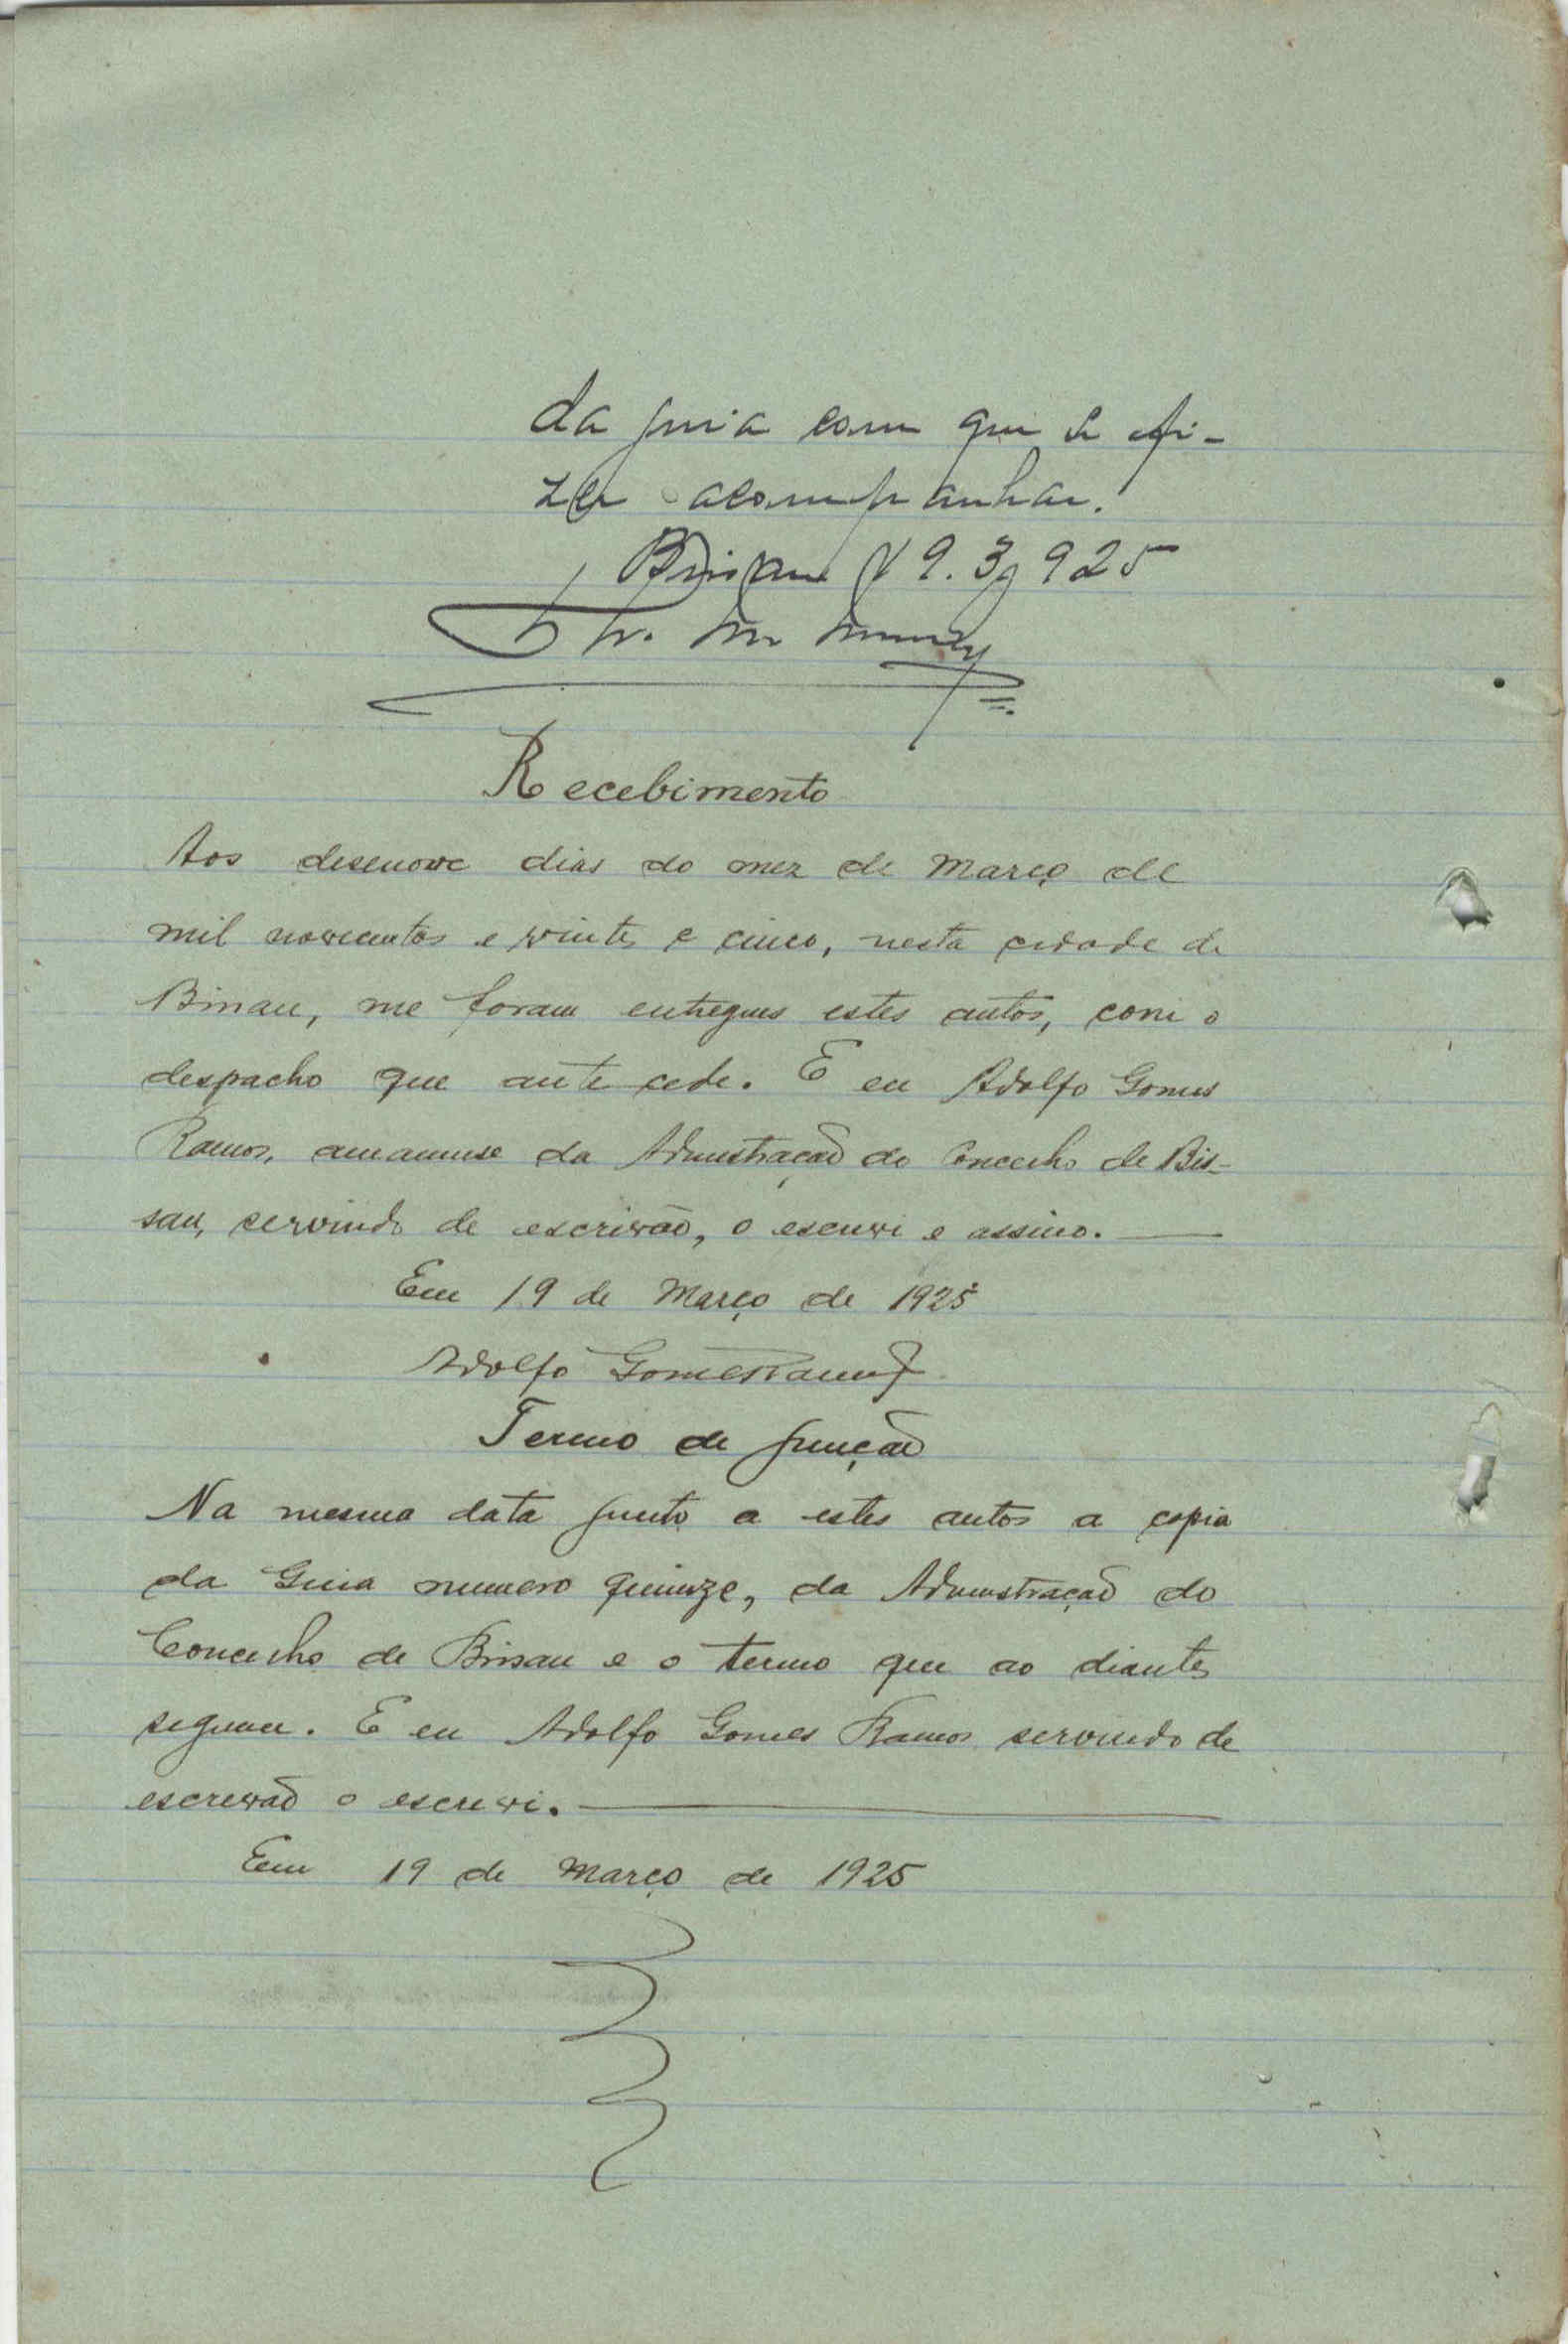 da guia com que se fi-
zer acompanhar.
Bissau 19.3.925
Recebimento
Aos desenove dias do mez de Março de
mil novecentos e vinte e cinco, nesta cidade de
Bissau, me foram entregues estes autos, com o
despacho que antecede. E eu Adolfo Gomes
Ramos, amanuense da Admnstração do Concelho de Bis-
sau, servindo de escrivão, o escrevi e assino.
Em 19 de Março de 1925
Adolfo Gomes Ramos
Termo de junção
Na mesma data junto a estes autos a copia
da Guia numero quinze, da Admnstração do
Concelho de Bissau e o termo que ao diante
seguem. E eu Adolfo Gomes Ramos servindo de
escrevão o escrevi.
Em 19 de Março de 1925